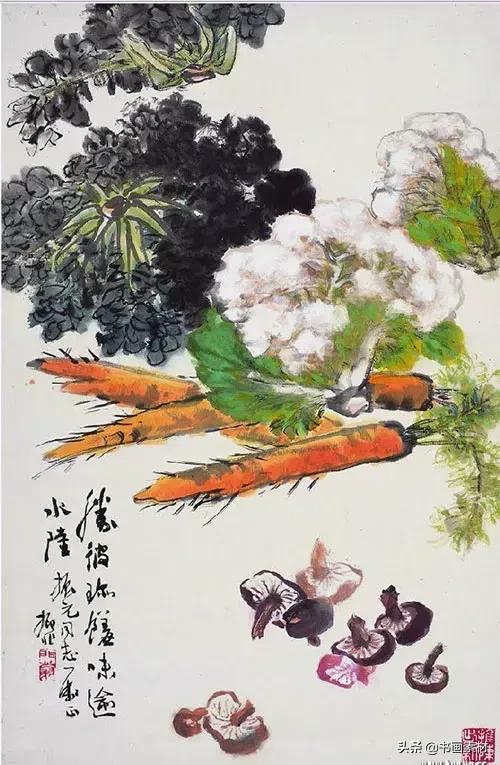 勝彼珎饈味逾
水陸 振元同志
头条 @书画素材